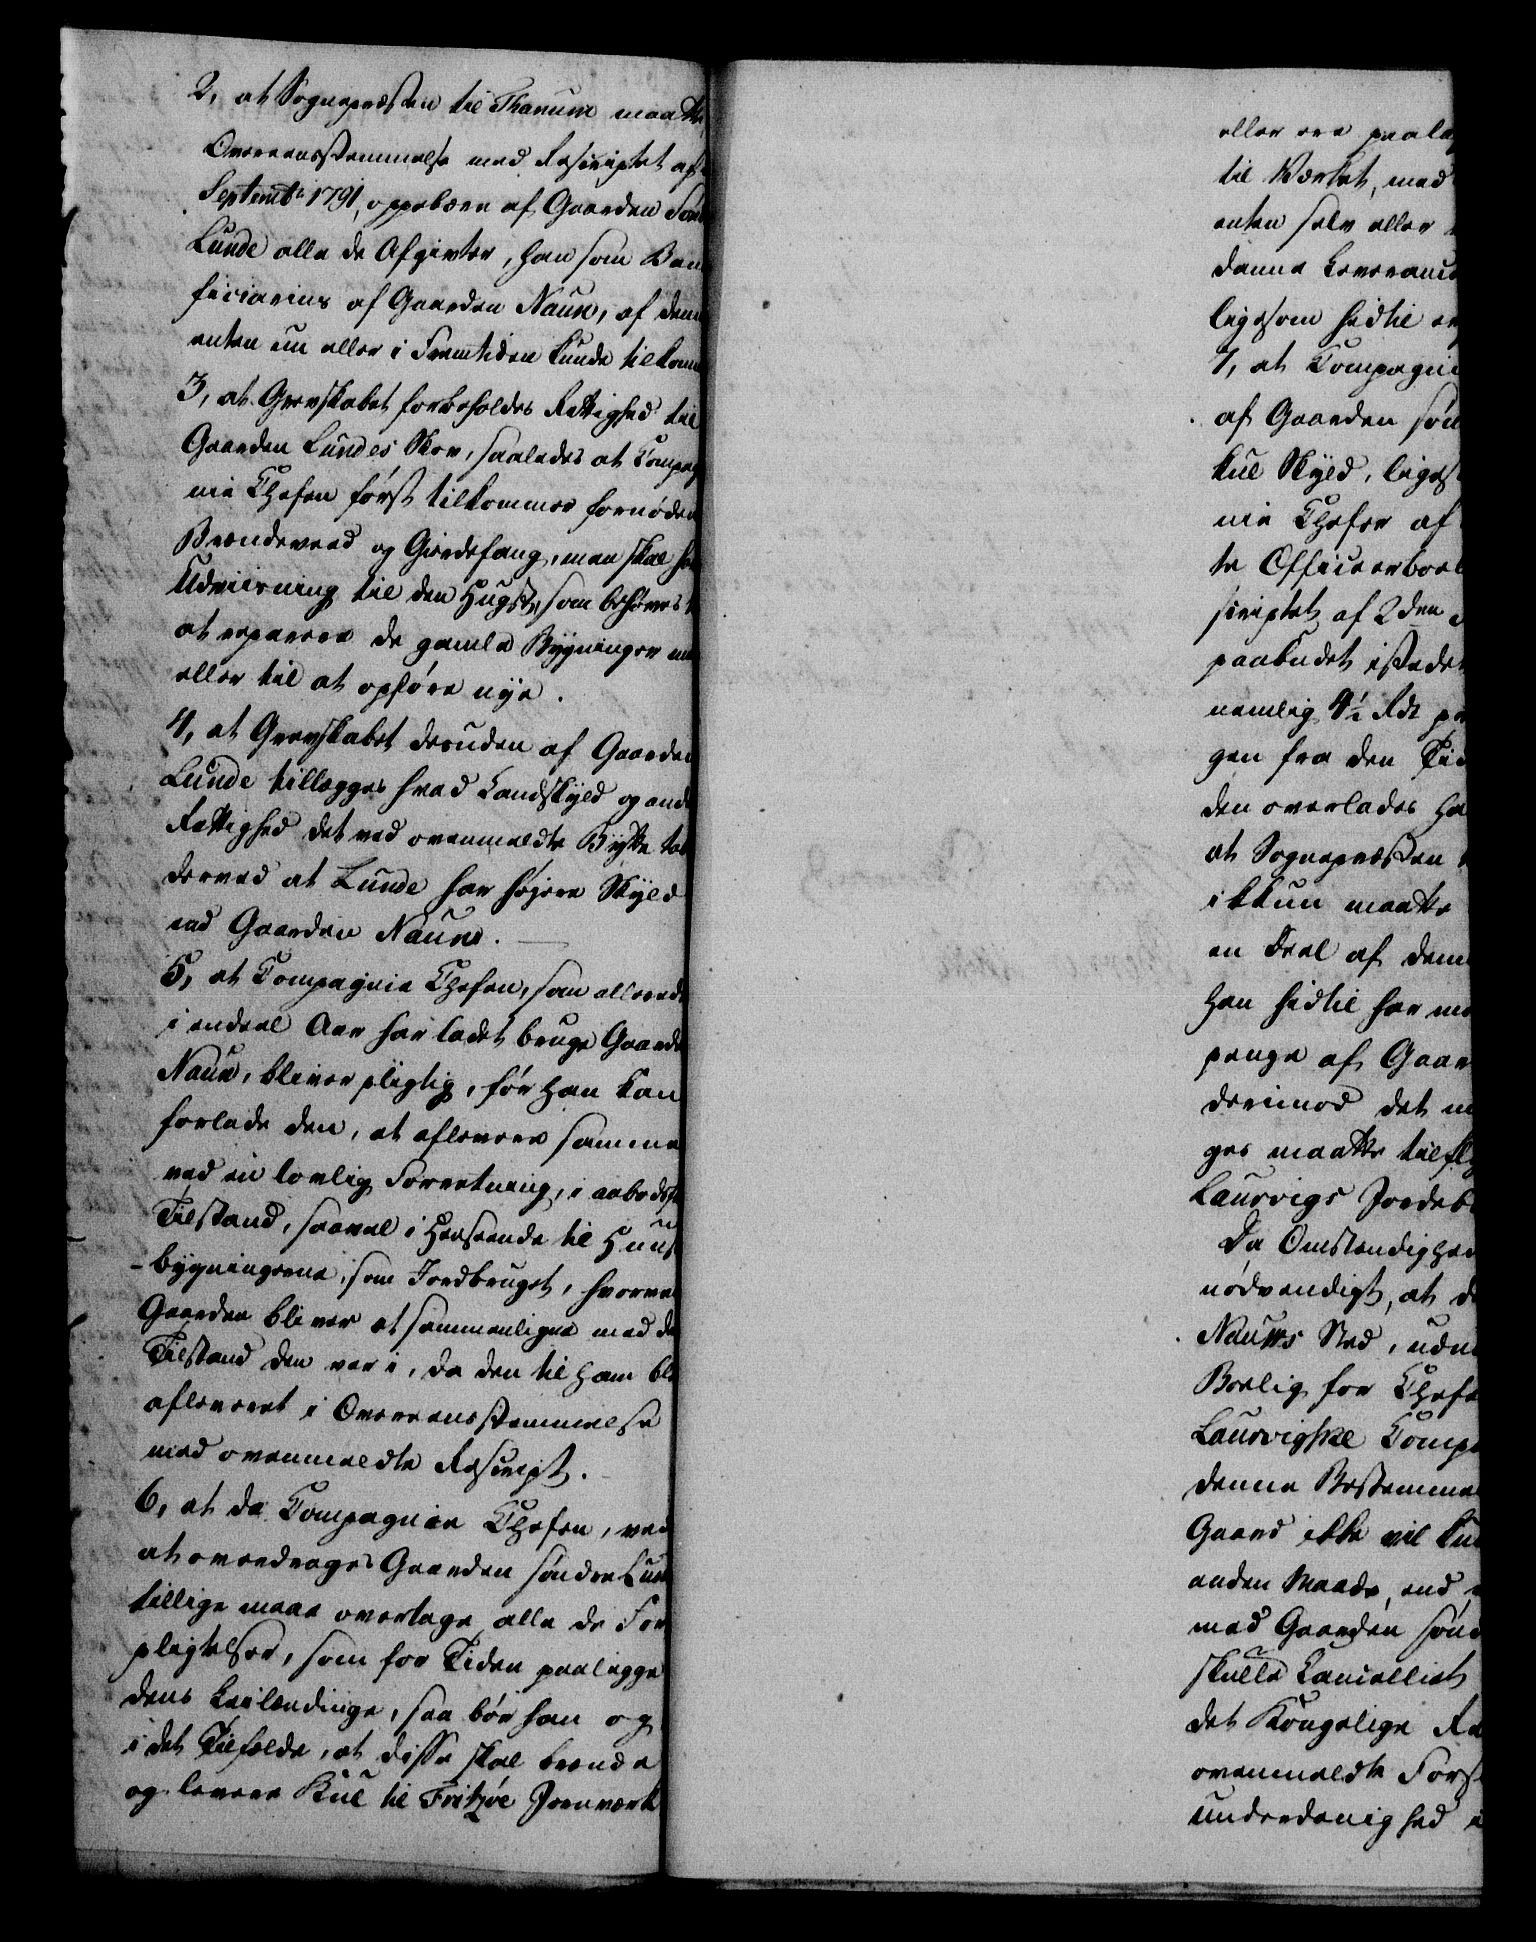 2, at Sognepræsten til Thanum maatte,
Overeensstemmelse med Rescriptet af
Septembr 1791, oppebære af Gaarden Søn
Lunde alle de Afgivter, han som Bene
ficiarius af Gaarden Naun, af dem
enten nu eller i Fremtiden kunde tilkom
3, at Grevskabet forbeholdes Rettighed til
Gaarden Lundes Skov, saaledes at Compag
nie Chefen først tilkommer fornøden
Brændeveed og Gierdefang, men skal ha
Udviisning til den Hugst, som behøves t
at reparere de gamle Bygninger
eller til at opføre nye.
4, at Grevskabet desuden af Gaarden
Lunde tillægges hvad Landskyld og and
Rettighed det ved ovenmeldte Bytte tab
derved at Lunde har høiere Skyld
end Gaarden Naun.
5, at Compagnie Chefen, som allerede
i endeel Aar har ladet bruge Gaarde
Naun, bliver pligtig, før han kan
forlade den, at aflevere samme
ved en lovlig Forretning, i aabodsfr
Tilstand, saavel i Henseende til Huus
bygningerne, som Jordbruget, hvorved
Gaarden bliver at sammenligne med de
Tilstand den var i, da den til ham ble
afleveret i Overeensstemmelse
med ovenmeldte Rescript.
6, at da Compagnie Chefen, ved
at overdrages Gaarden søndre Lun
tillige maae overtage alle de For
pligtelser, som for Tiden paaligge
dens Leilændinge, saa bør han og
i det Tilfælde, at disse skal brænde
og levere Kul til Fritzøe Jernværk
eller ere paalag
til Værket, med
enten selv eller
danne Leverance
ligesom hidtil er
7, at Compagnie
af Gaarden søn
kul Skyld, ligest
nie Chefer af
te Officeerboel
scriptet af 2den
paabudet istedet
nemlig 4½ Rdr p
gen fra den Tid
den overlades ha
at Sognepræsten
ikkun maatte
en Deel af dem
han hidtil har m
penge af Gaar
derimod det m
ges maatte tilfly
Laurvigs Jordeb
Da Omstændighed
nødvendigt, at d
Nauns Sted, udn
Boelig for Chefe
Laurvigske Compa
denne Bestemme
Gaard ikke vil kun
anden Maade, end
med Gaarden sønd
skulle Cancelliet
det Kongelige Re
ovenmeldte Forst
underdanighed i